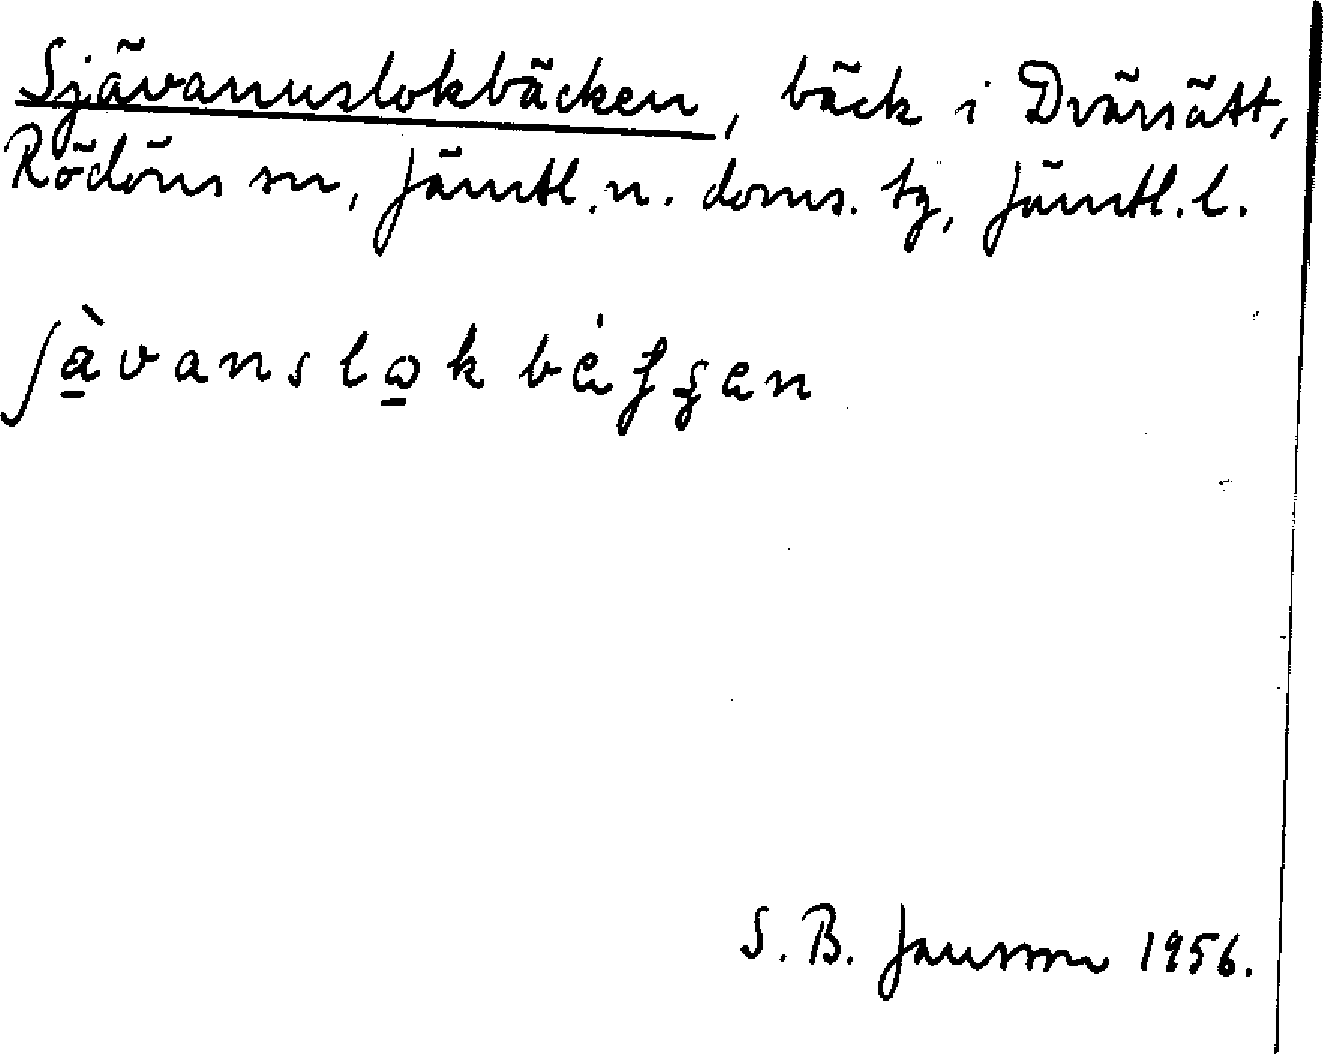 Sjävanuslokbäcken, bäck i Dvärsätt,
Rödöns sn, Jämtl. n. doms. tg, Jämtl. l.
ʃàvanslok
S. B. Jansson 1956.